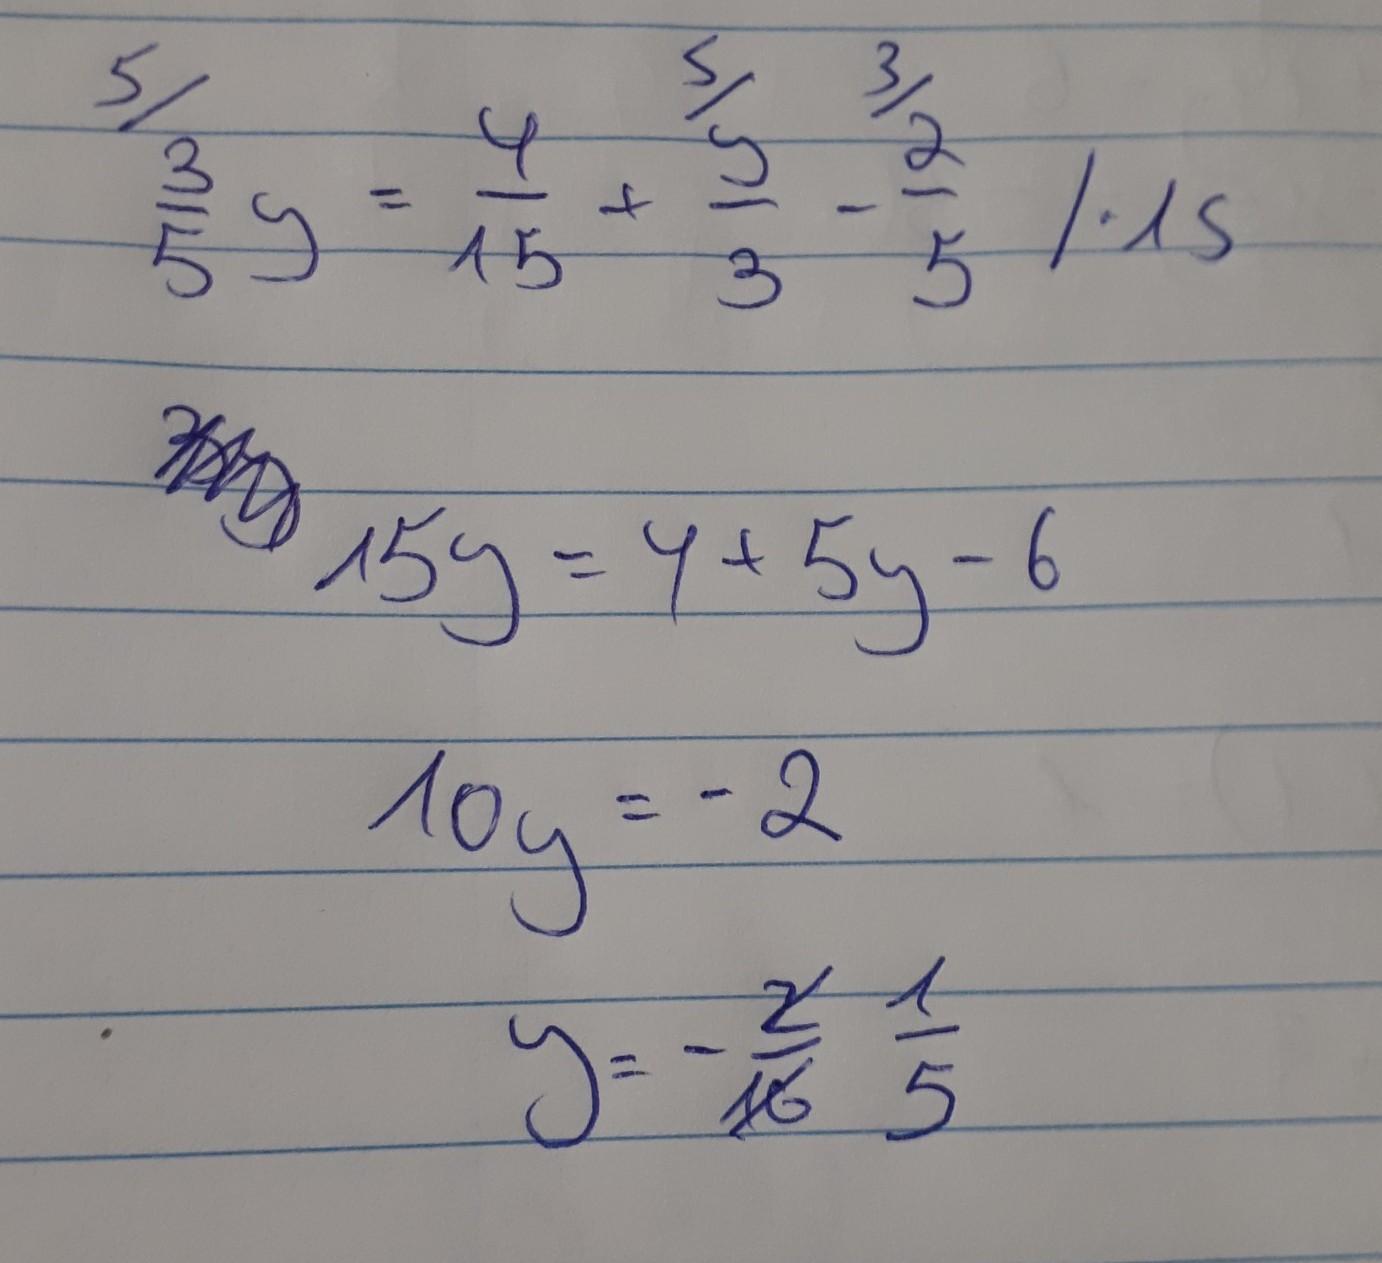 5/ 5/ 3/
3/5 y = 4/15 + y/3 - 2/5 / · 15
15y = 4 + 5y - 6
10y = - 2
y = - 2/10 1/5